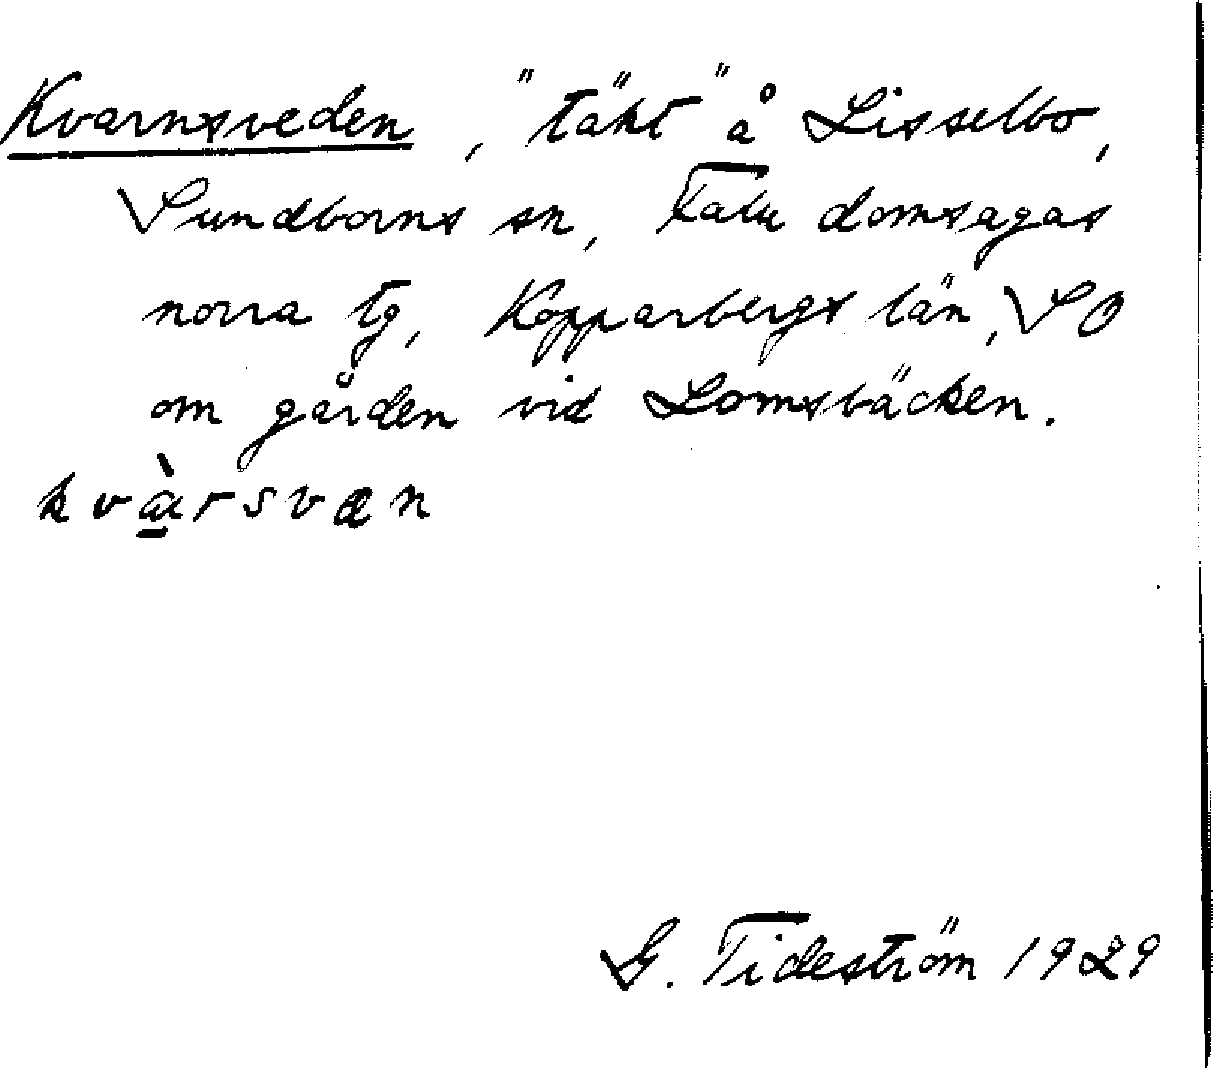 Kvarnsveden, "täkt" å Lisselbo,
Sundborns sn, Falu domsagas
norra tg, Kopparbergs län, SO
om gården vid Lomsbäcken.
kvæ̀rsvæn
G. Tideström 1929